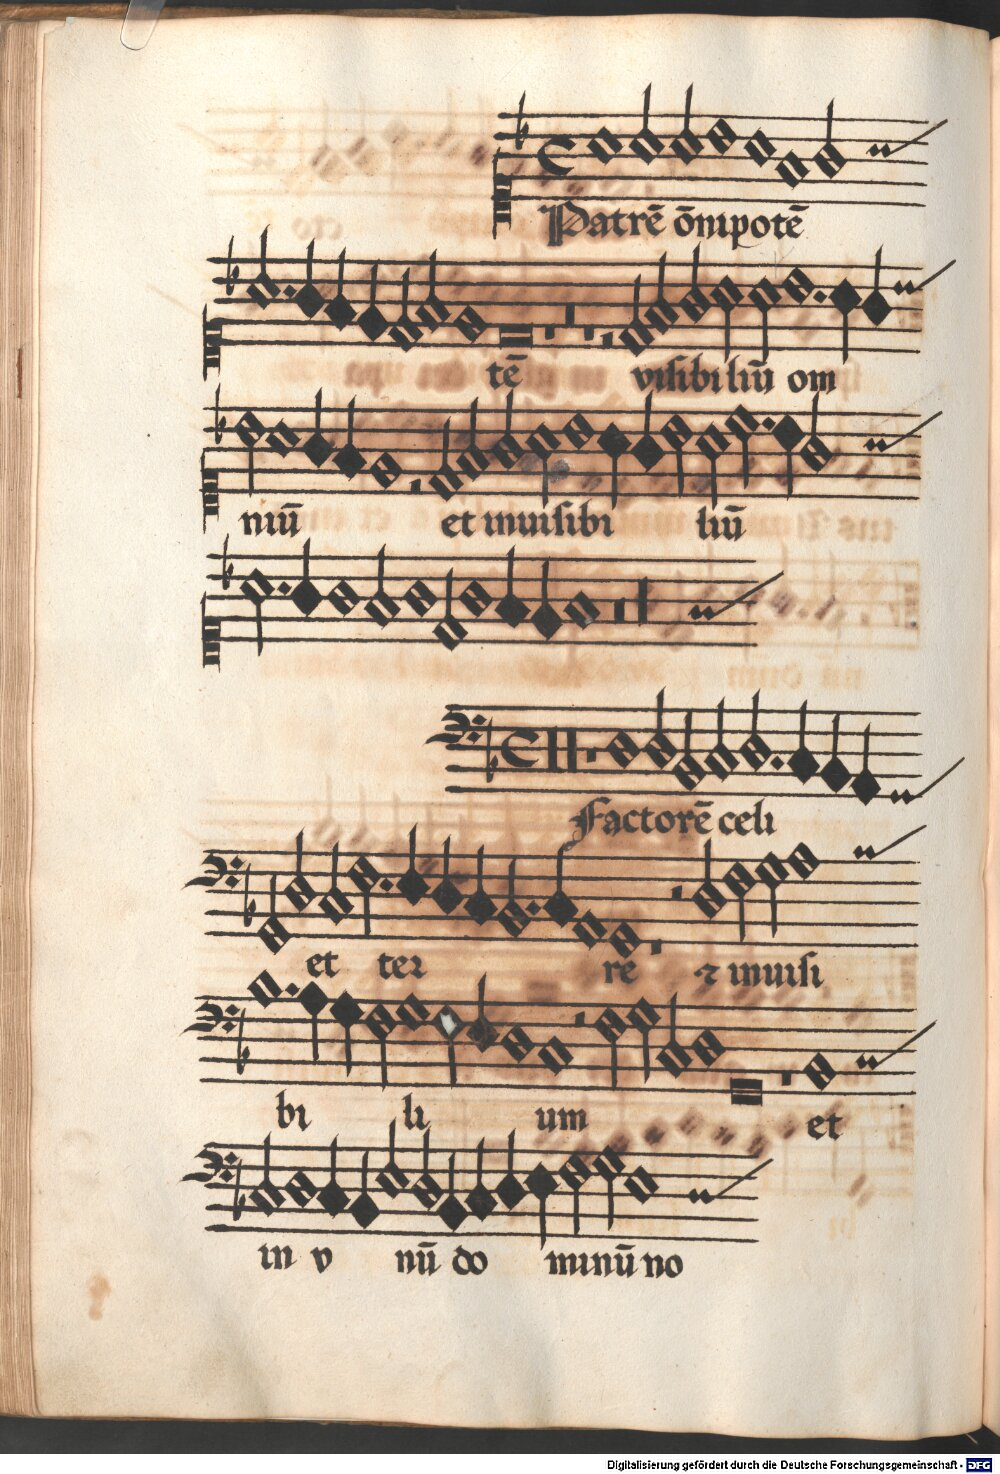 Patrē ōmpotē
tē visibiliū om
niū et inuisibi liū
Factorē celi
et ter re ⁊ inuisi
bi li um et
in v nū do minū no
Digitalisierung gefördert durch die Deutsche Forschungsgemeinschaft - DFG